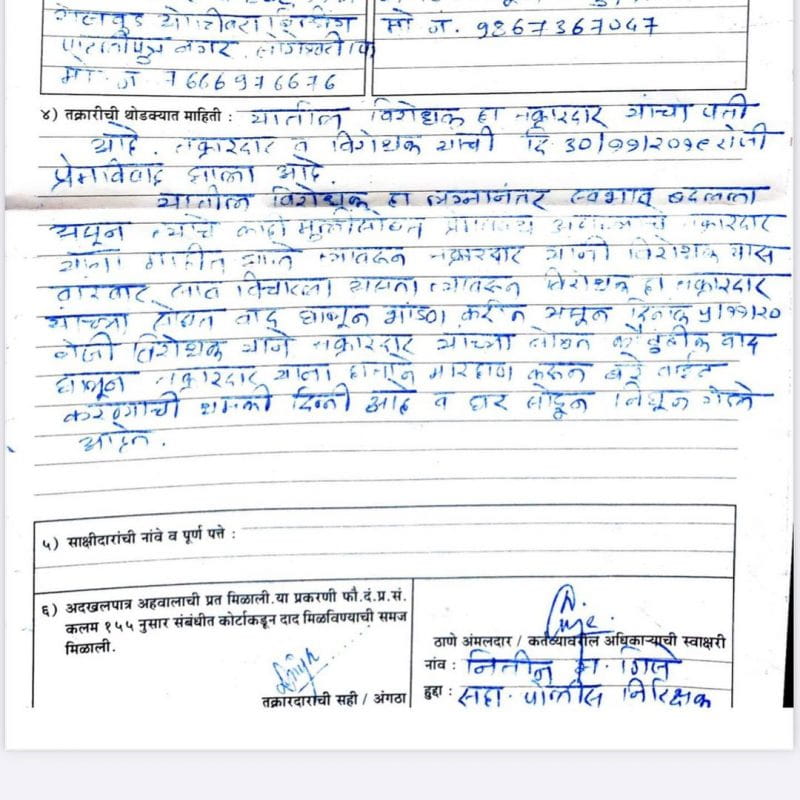 मो न. 9867367047
पाटलीपुत्र नगर,
मो. न 7666976676
४) तक्रारीची थोडक्यात माहिती : यातील विरोधक हा तक्रारदार यांचा पती
आहे. तक्रारदार व विरोधक यांची दि 30/११/२०१८ रोजी
प्रेमविवाह झाला आहे.
यातील विरोधक हा लग्नानंतर स्वभाव बदलला
असून त्याचे काही मुलींसोबत तक्रारदार
यांना माहीत झाले त्यावरून तक्रारदार यांनी विरोधक यास
वारंवार विचारला असता त्यावरून विरोधक हा तक्रारदार
यांच्या सोबत वाद घालून भांडण करीत असून दिनांक ५/११/२०
रोजी विरोधक याने तक्रारदार यांच्या सोबत कौटुंबीक वाद
घालून तक्रारदार यांना हाताने मारहाण करून बरे वाईट
करण्याची धमकी दिली आहे व घर सोडून निघून गेले
आहेत.
५) साक्षीदारांची नांवे व पूर्ण पत्ते :
६) अदखलपात्र अहवालाची प्रत मिळाली.या प्रकरणी फौ.दं.प्र.सं.
कलम १५५ नुसार संबंधीत कोर्टाकडून दाद मिळविण्याची समज
मिळाली.
तक्रारदाराची सही / अंगठा
ठाणे अंमलदार / कर्तव्यावरील अधिकाऱ्याची स्वाक्षरी
नांव : नितीन म. गिजे
हुद्दा : सहा. पोलीस निरिक्षक